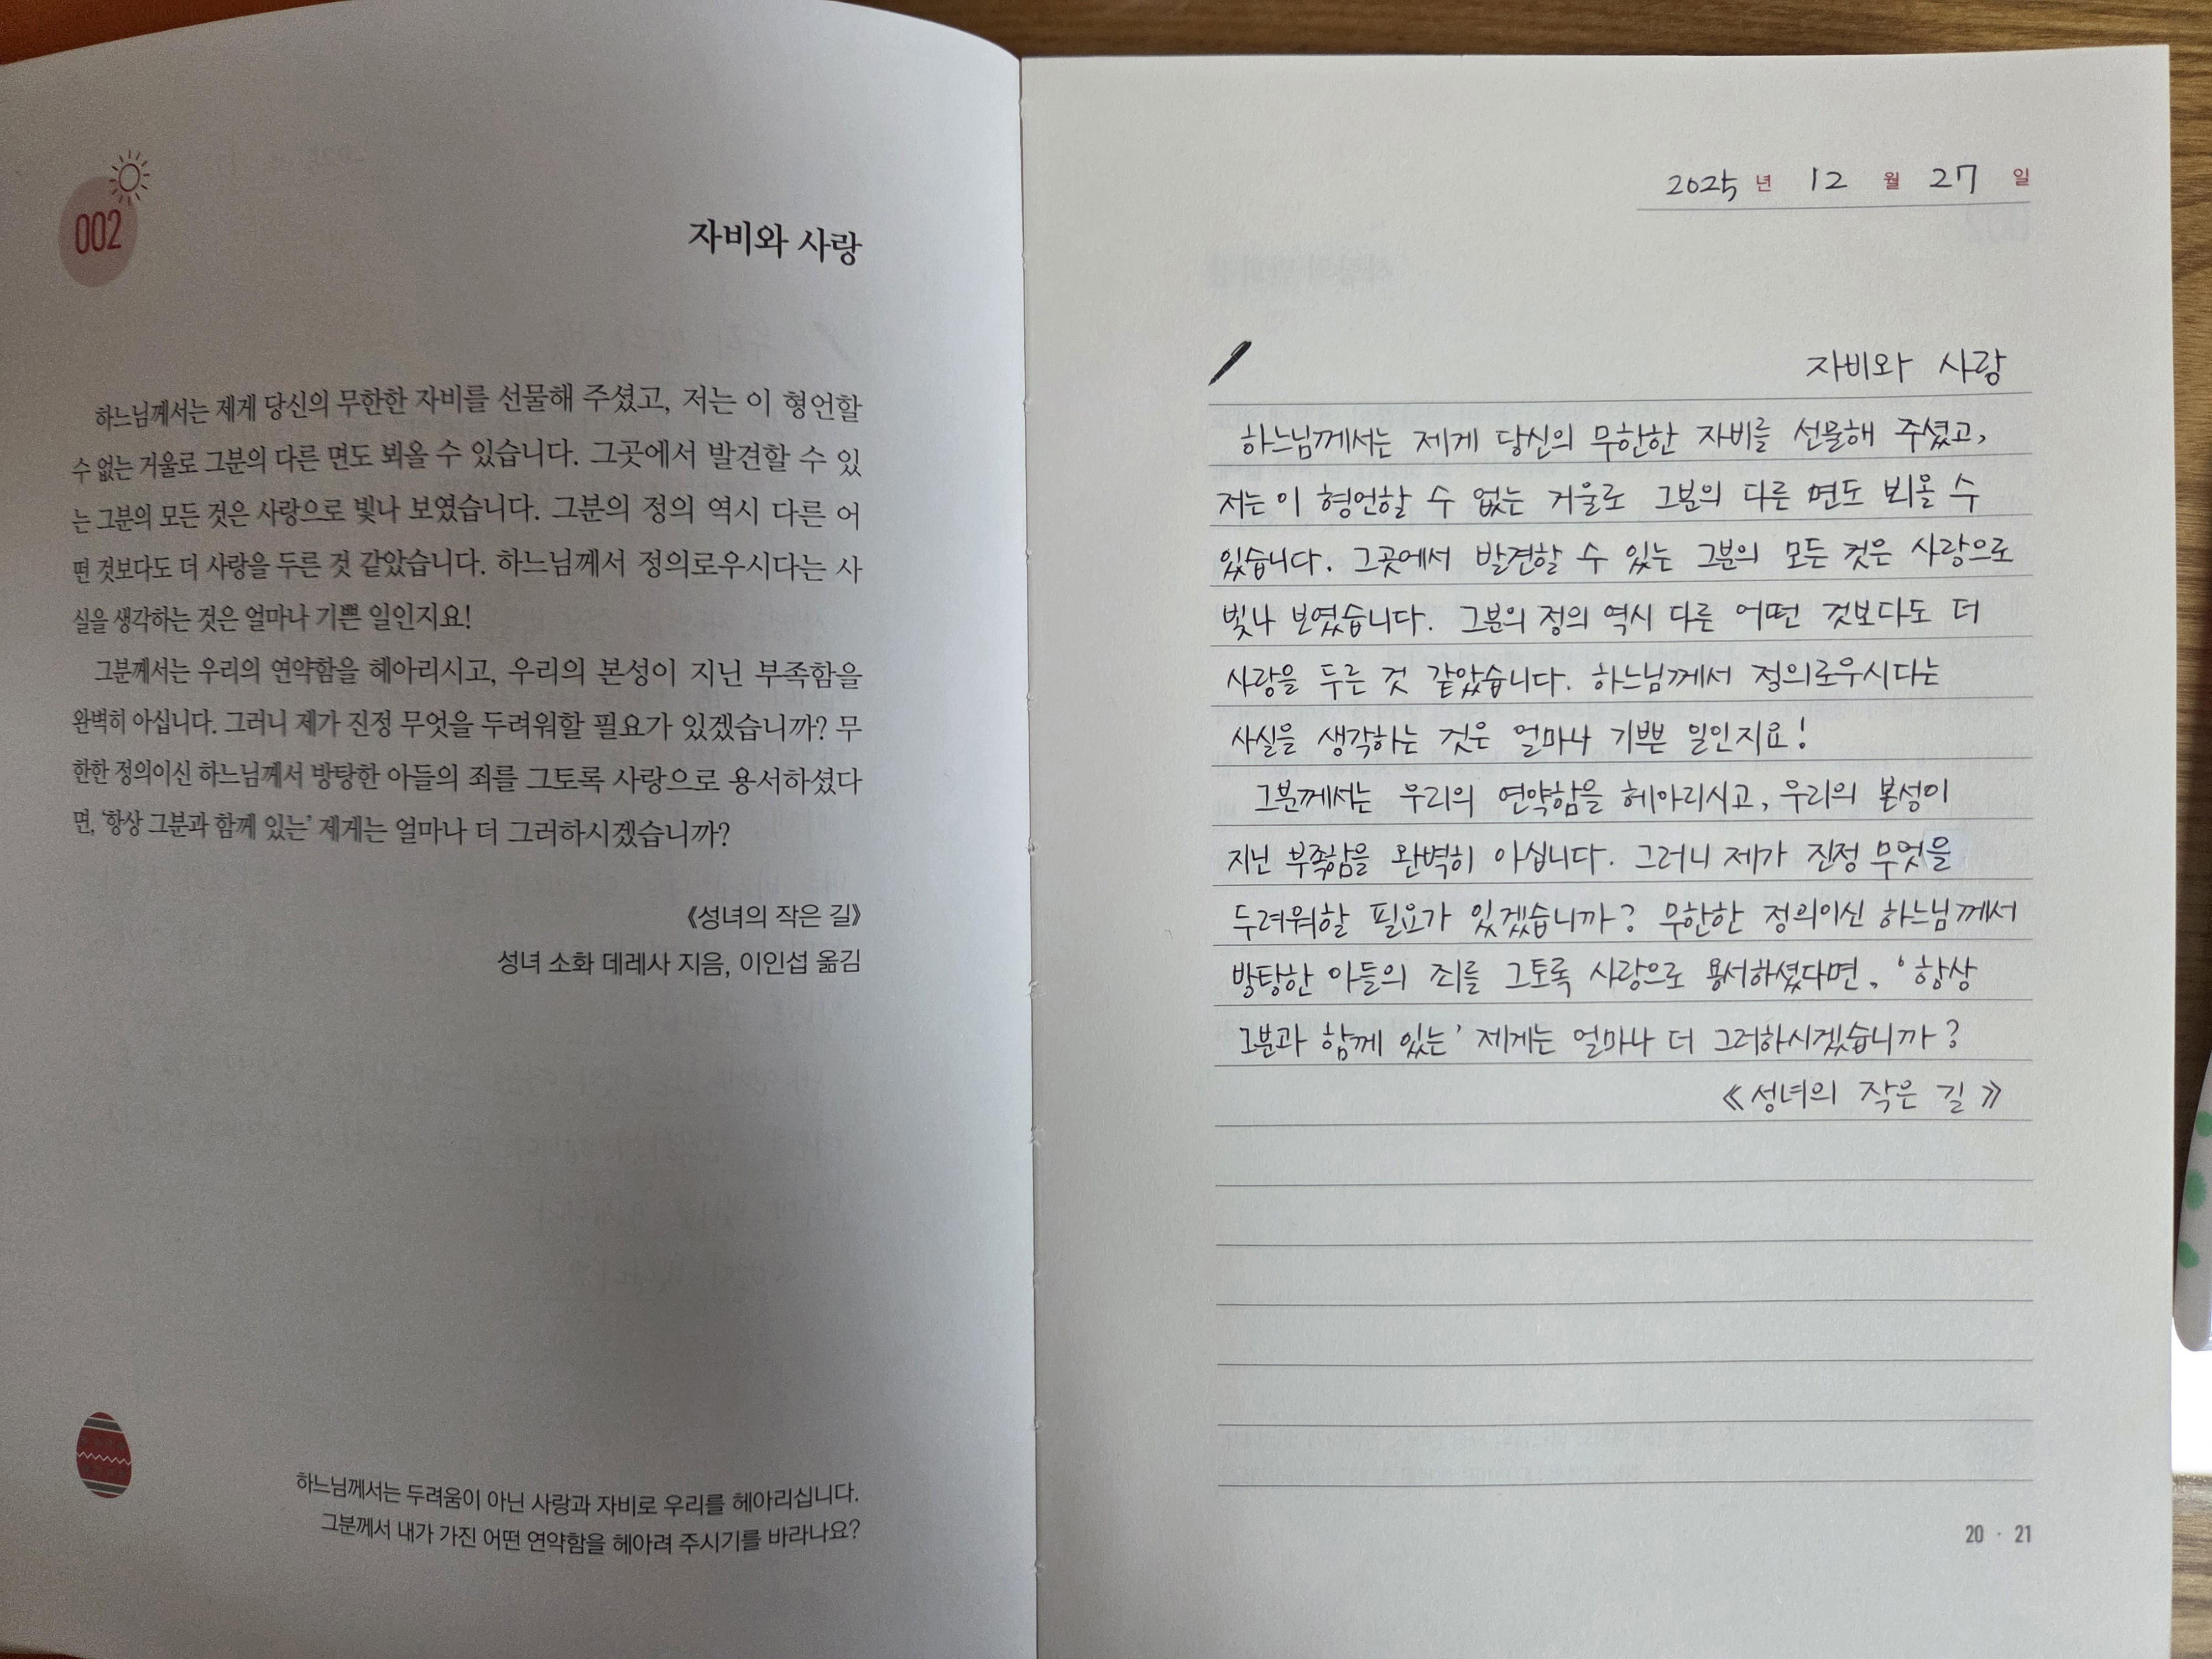 002
자비와 사랑
하느님께서는 제게 당신의 무한한 자비를 선물해 주셨고, 저는 이 형언할
수 없는 거울로 그분의 다른 면도 뵈올 수 있습니다. 그곳에서 발견할 수 있
는 그분의 모든 것은 사랑으로 빛나 보였습니다. 그분의 정의 역시 다른 어
떤 것보다도 더 사랑을 두른 것 같았습니다. 하느님께서 정의로우시다는 사
실을 생각하는 것은 얼마나 기쁜 일인지요!
그분께서는 우리의 연약함을 헤아리시고, 우리의 본성이 지닌 부족함을
완벽히 아십니다. 그러니 제가 진정 무엇을 두려워할 필요가 있겠습니까? 무
한한 정의이신 하느님께서 방탕한 아들의 죄를 그토록 사랑으로 용서하셨다
면, ‘항상 그분과 함께 있는’ 제게는 얼마나 더 그러하시겠습니까?
《성녀의 작은 길》
성녀 소화 데레사 지음, 이인섭 옮김
하느님께서는 두려움이 아닌 사랑과 자비로 우리를 헤아리십니다.
그분께서 내가 가진 어떤 연약함을 헤아려 주시기를 바라나요?
2025 년 12 월 27 일
자비와 사랑
하느님께서는 제게 당신의 무한한 자비를 선물해 주셨고,
저는 이 형언할 수 없는 거울로 그분의 다른 면도 뵈올 수
있습니다. 그곳에서 발견할 수 있는 그분의 모든 것은 사랑으로
빛나 보였습니다. 그분의 정의 역시 다른 어떤 것보다도 더
사랑을 두른 것 같았습니다. 하느님께서 정의로우시다는
사실을 생각하는 것은 얼마나 기쁜 일인지요!
그분께서는 우리의 연약함을 헤아리시고, 우리의 본성이
지닌 부족함을 완벽히 아십니다. 그러니 제가 진정 무엇을
두려워할 필요가 있겠습니까? 무한한 정의이신 하느님께서
방탕한 아들의 죄를 그토록 사랑으로 용서하셨다면, ‘항상
그분과 함께 있는’ 제게는 얼마나 더 그러하시겠습니까?
《성녀의 작은 길》
20 · 21